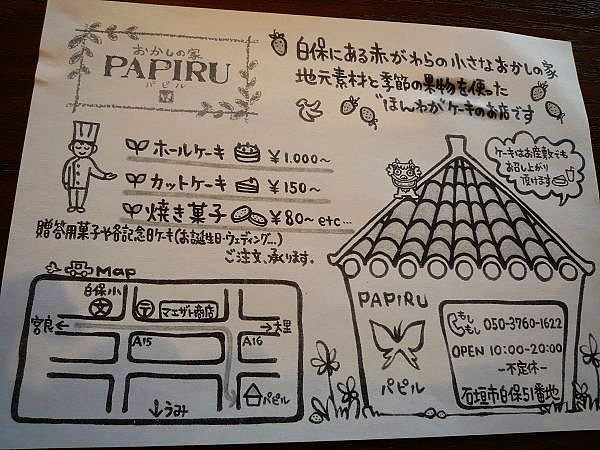 おかしの家
PAPIRU
パピル
白保にある赤がわらの小さなおかしの家
地元素材と季節の果物を使った
"ほんわが"ケーキのお店です
ホールケーキ ¥1.000～
カットケーキ ¥150～
焼き菓子 ¥80～etc...
贈答用菓子や各記念日ケーキ(お誕生日・ウェディング...)
ご注文、承ります。
ケーキはお座敷でも
お召し上がり
頂けます
Map
白保小
文
〒
マエザト商店
宮良
大里
A15
A16
パピル
↓うみ
PAPIRU
パピル
もしもし 050-3760-1622
OPEN 10:00-20:00
-不定休-
石垣市白保51番地